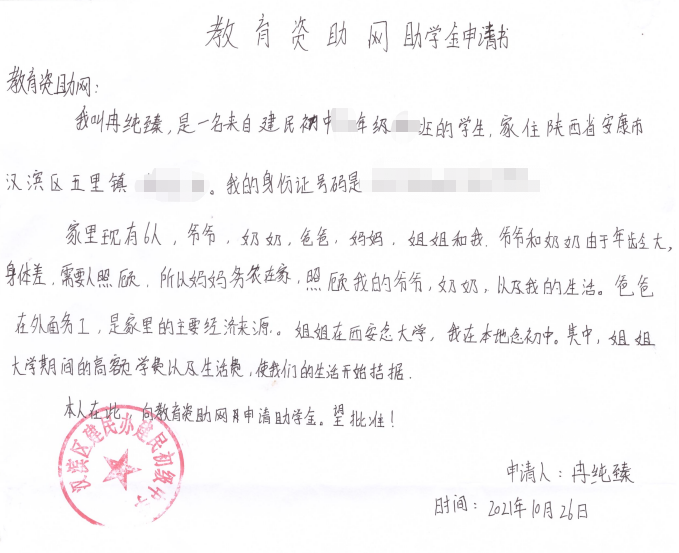 教育资助网助学金申请书
教育资助网：
我叫冉纯臻，是一名来自建民初中年级班的学生，家住陕西省安康市
汉滨区五里镇。我的身份证号码是
家里现有6人，爷爷，奶奶，爸爸，妈妈，姐姐和我。爷爷和奶奶由于年龄大，
身体差，需要人照顾，所以妈妈务农在家，照顾我的爷爷，奶奶，以及我的生活。爸爸
在外面务工，是家里的主要经济来源。姐姐在西安念大学，我在本地念初中。其中，姐姐
大学期间的高额学费以及生活费，使我们的生活开始拮据.
本人在此，向教育资助网申请助学金。望批准！
汉滨区建民办建民初级中学
申请人：冉纯臻
时间：2021年10月26日